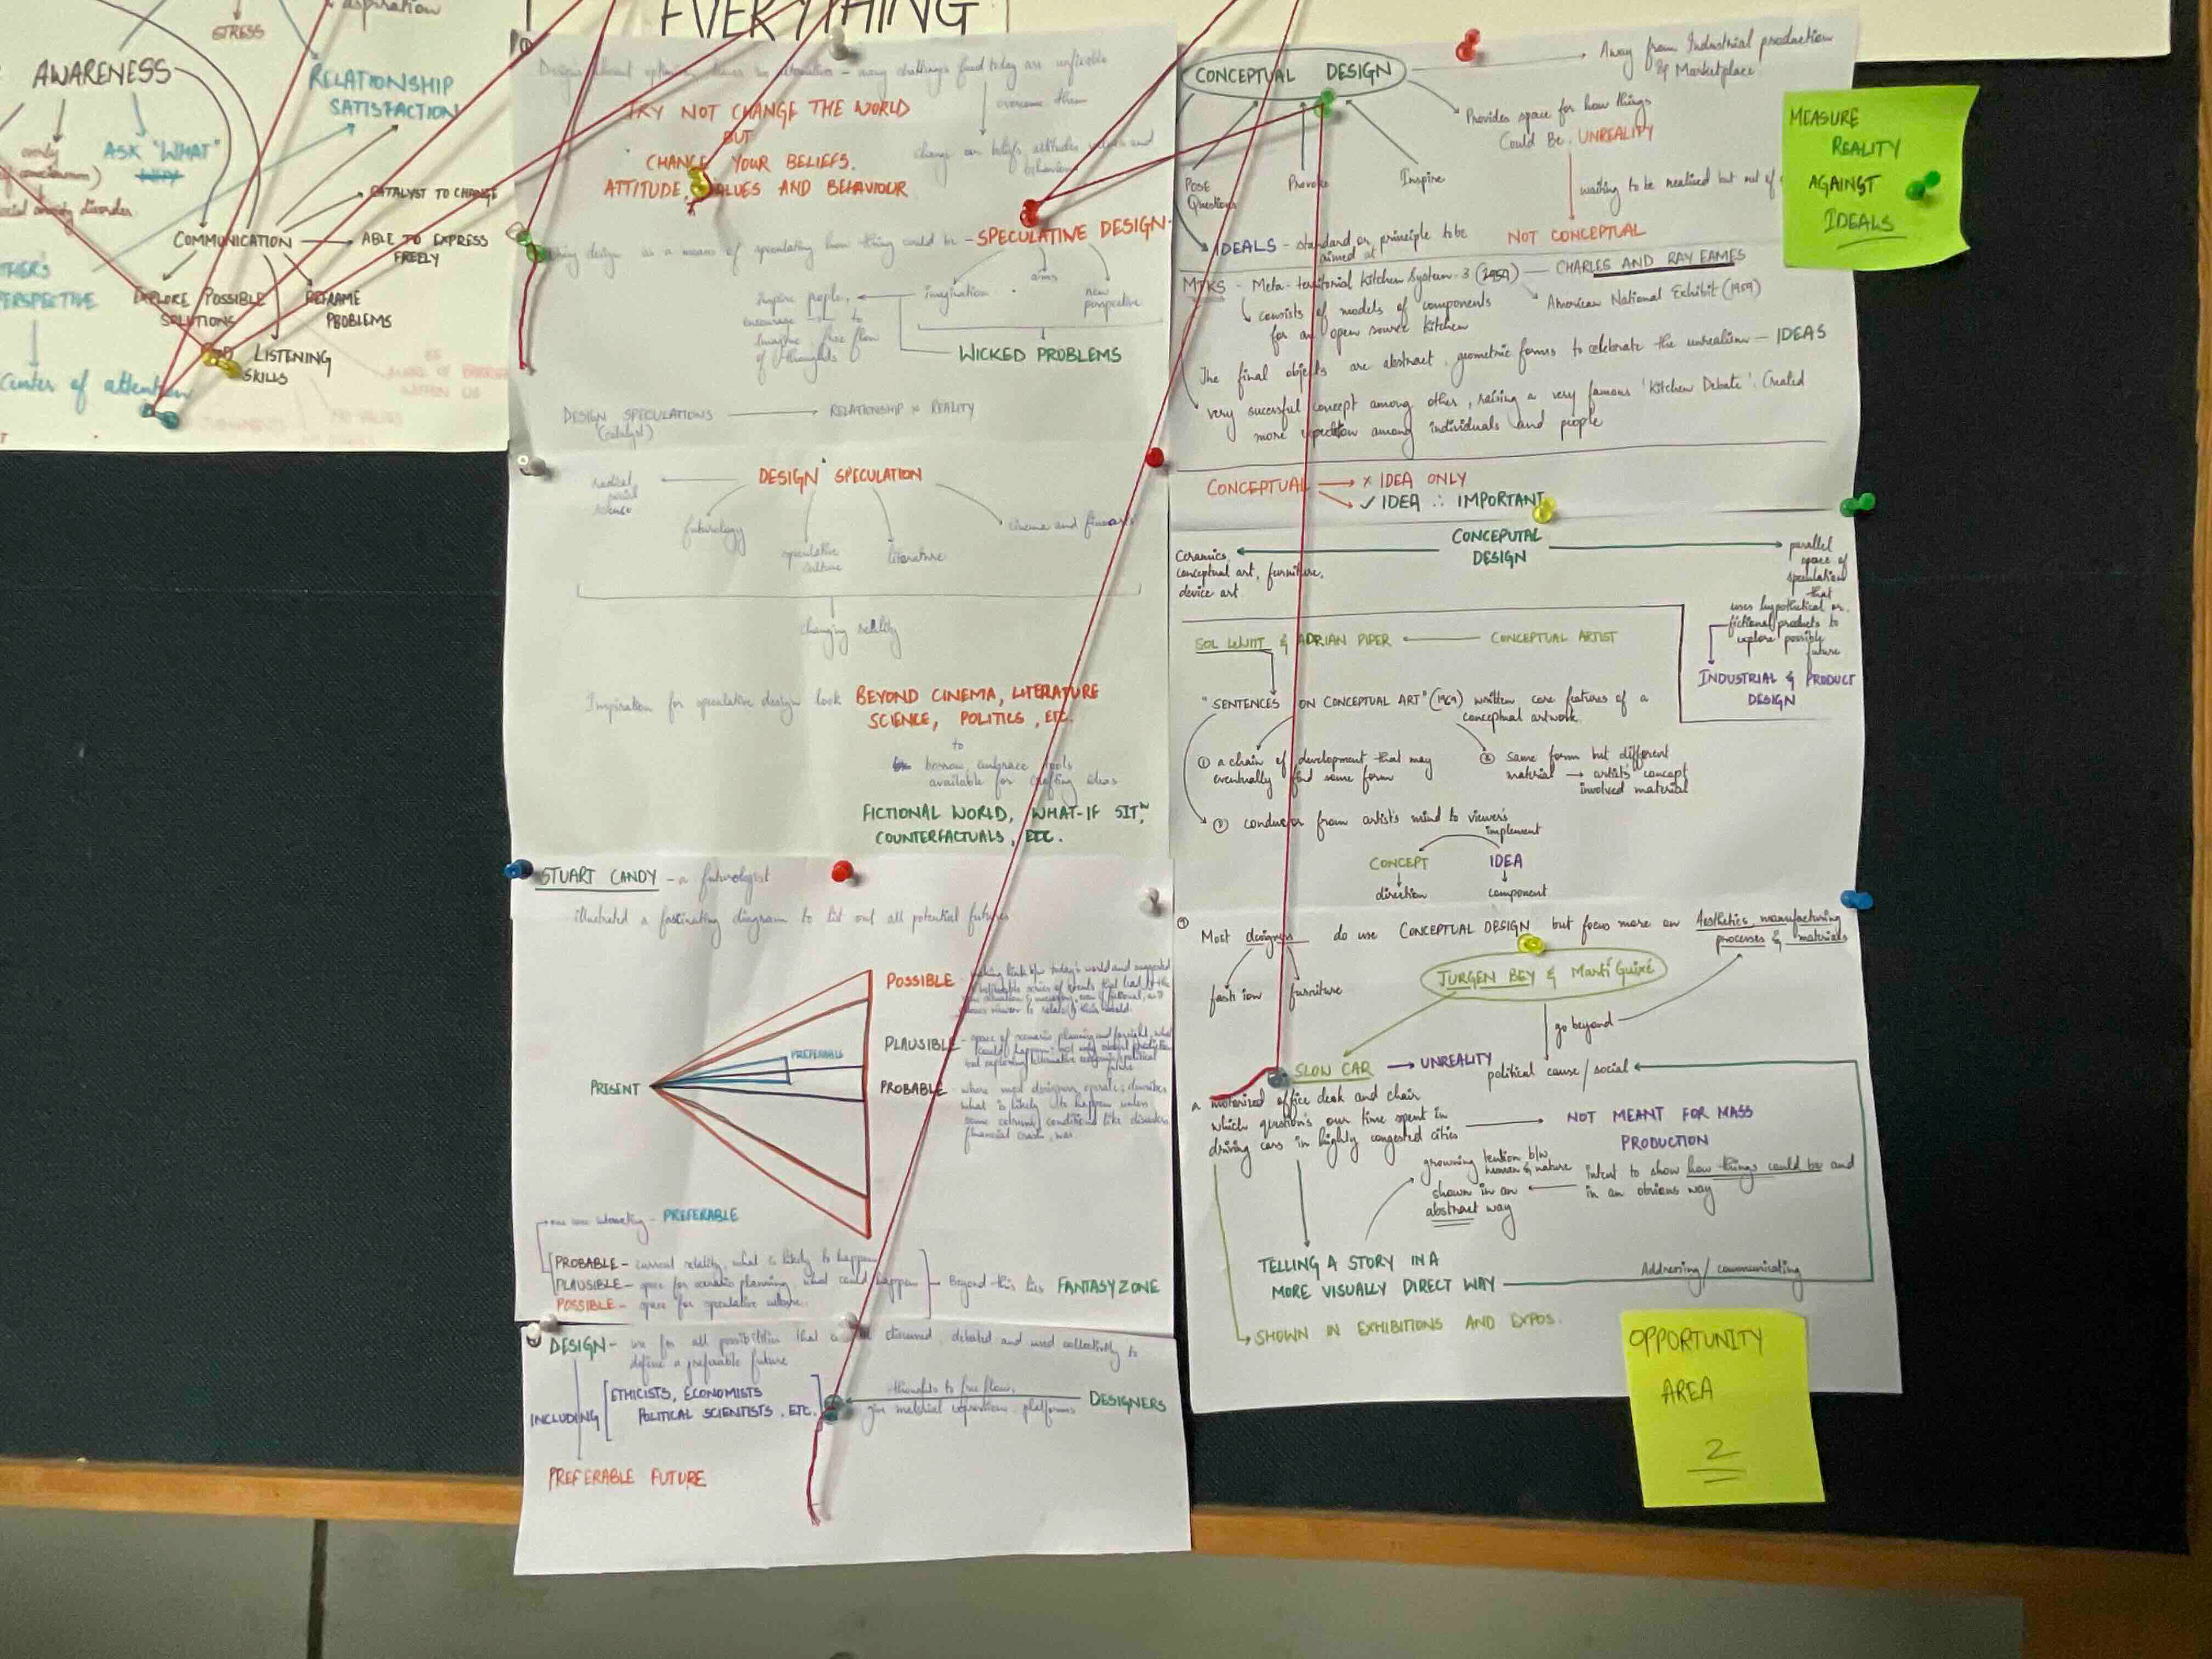 aspiration
STRESS
AWARENESS
RELATIONSHIP
SATISFACTION
ASK "WHAT"
WHY
CATALYST TO CHANGE
COMMUNICATION
ABLE TO EXPRESS
FREELY
PERSPECTIVE
EXPLORE POSSIBLE
SOLUTIONS
REFRAME
PROBLEMS
LISTENING
SKILLS
Center of attention
EVERYTHING
many challenges faced today are unfixable
overcome them
TRY NOT CHANGE THE WORLD
BUT
CHANGE YOUR BELIEFS.
ATTITUDE, VALUES AND BEHAVIOUR
change our beliefs attitudes values and
behaviour
using design as a means of speculating how thing could be - SPECULATIVE DESIGN
imagination
aims
new
perspective
inspire people,
encourage to
imagine, free flow
of thoughts
WICKED PROBLEMS
DESIGN SPECULATIONS
(catalyst)
RELATIONSHIP × REALITY
DESIGN SPECULATION
radical
social
science
futurology
speculative
culture
literature
cinema and finearts
changing reality
Inspiration for speculative design look BEYOND CINEMA, LITERATURE
SCIENCE, POLITICS, ETC.
to
borrow, embrace tools
available for crafting ideas
FICTIONAL WORLD, WHAT-IF SITⁿ,
COUNTERFACTUALS, ETC.
STUART CANDY - a futurologist
illustrated a fascinating diagram to list out all potential futures
POSSIBLE
PLAUSIBLE
PROBABLE
PREFERABLE
PRESENT
making link b/w today's world and suggested
space of scenario planning and foresight, what
where most designers operate; describes
what is likely to happen unless
some extreme conditions like disasters
financial crash, war.
PREFERABLE
PROBABLE - current reality, what is likely to happen
PLAUSIBLE - space for scenario planning, what could happen
POSSIBLE - space for speculative culture.
Beyond this lies FANTASY ZONE
DESIGN - use for all possibilities that discussed, debated and used collectively to
define a preferable future
INCLUDING
ETHICISTS, ECONOMISTS
POLITICAL SCIENTISTS, ETC.
thoughts to free flow,
give material expression, platforms
DESIGNERS
PREFERABLE FUTURE
CONCEPTUAL DESIGN
Away from Industrial production
& Marketplace
Provides space for how things
Could Be. UNREALITY
POSE
Questions
Provoke
Inspire
waiting to be realised but out of
NOT CONCEPTUAL
IDEALS - standard or principle to be
aimed at
MTKS - Meta-territorial Kitchen System-3 (1959)
CHARLES AND RAY EAMES
American National Exhibit (1959)
consists of models of components
for an open source kitchen
The final objects are abstract, geometric forms to celebrate the unrealism - IDEAS
very sucessful concept among other, raising a very famous 'Kitchen Debate'. Created
more among individuals and people
CONCEPTUAL
× IDEA ONLY
✓ IDEA ∴ IMPORTANT
CONCEPUTAL
DESIGN
Ceramics,
conceptual art, furniture,
device art
parallel
space of
speculation
that
uses hypothetical or
fictional products to
explore possibly
future
INDUSTRIAL & PRODUCT
DESIGN
SOL LEWITT & ADRIAN PIPER
CONCEPTUAL ARTIST
"SENTENCES ON CONCEPTUAL ART" (1969) written core features of a
conceptual artwork.
① a chain of development that may
eventually find some form
② same form but different
material → artist's concept
involved material
③ conductor from artist's mind to viewer's
implement
CONCEPT
IDEA
direction
component
Most designers do use CONCEPTUAL DESIGN but focus more on Aesthetics, manufacturing
processes & materials
fashion
furniture
JURGEN BEY & Martí Guixé
go beyond
SLOW CAR → UNREALITY
political cause / social
a motorized office desk and chair
which question's our time spent in
driving cars in highly congested cities
NOT MEANT FOR MASS
PRODUCTION
growing tention b/w
human & nature
shown in an
abstract way
intent to show how things could be and
in an obvious way
TELLING A STORY IN A
MORE VISUALLY DIRECT WAY
Addressing / communicating
SHOWN IN EXHIBITIONS AND EXPOS.
MEASURE
REALITY
AGAINST
IDEALS
OPPORTUNITY
AREA
2